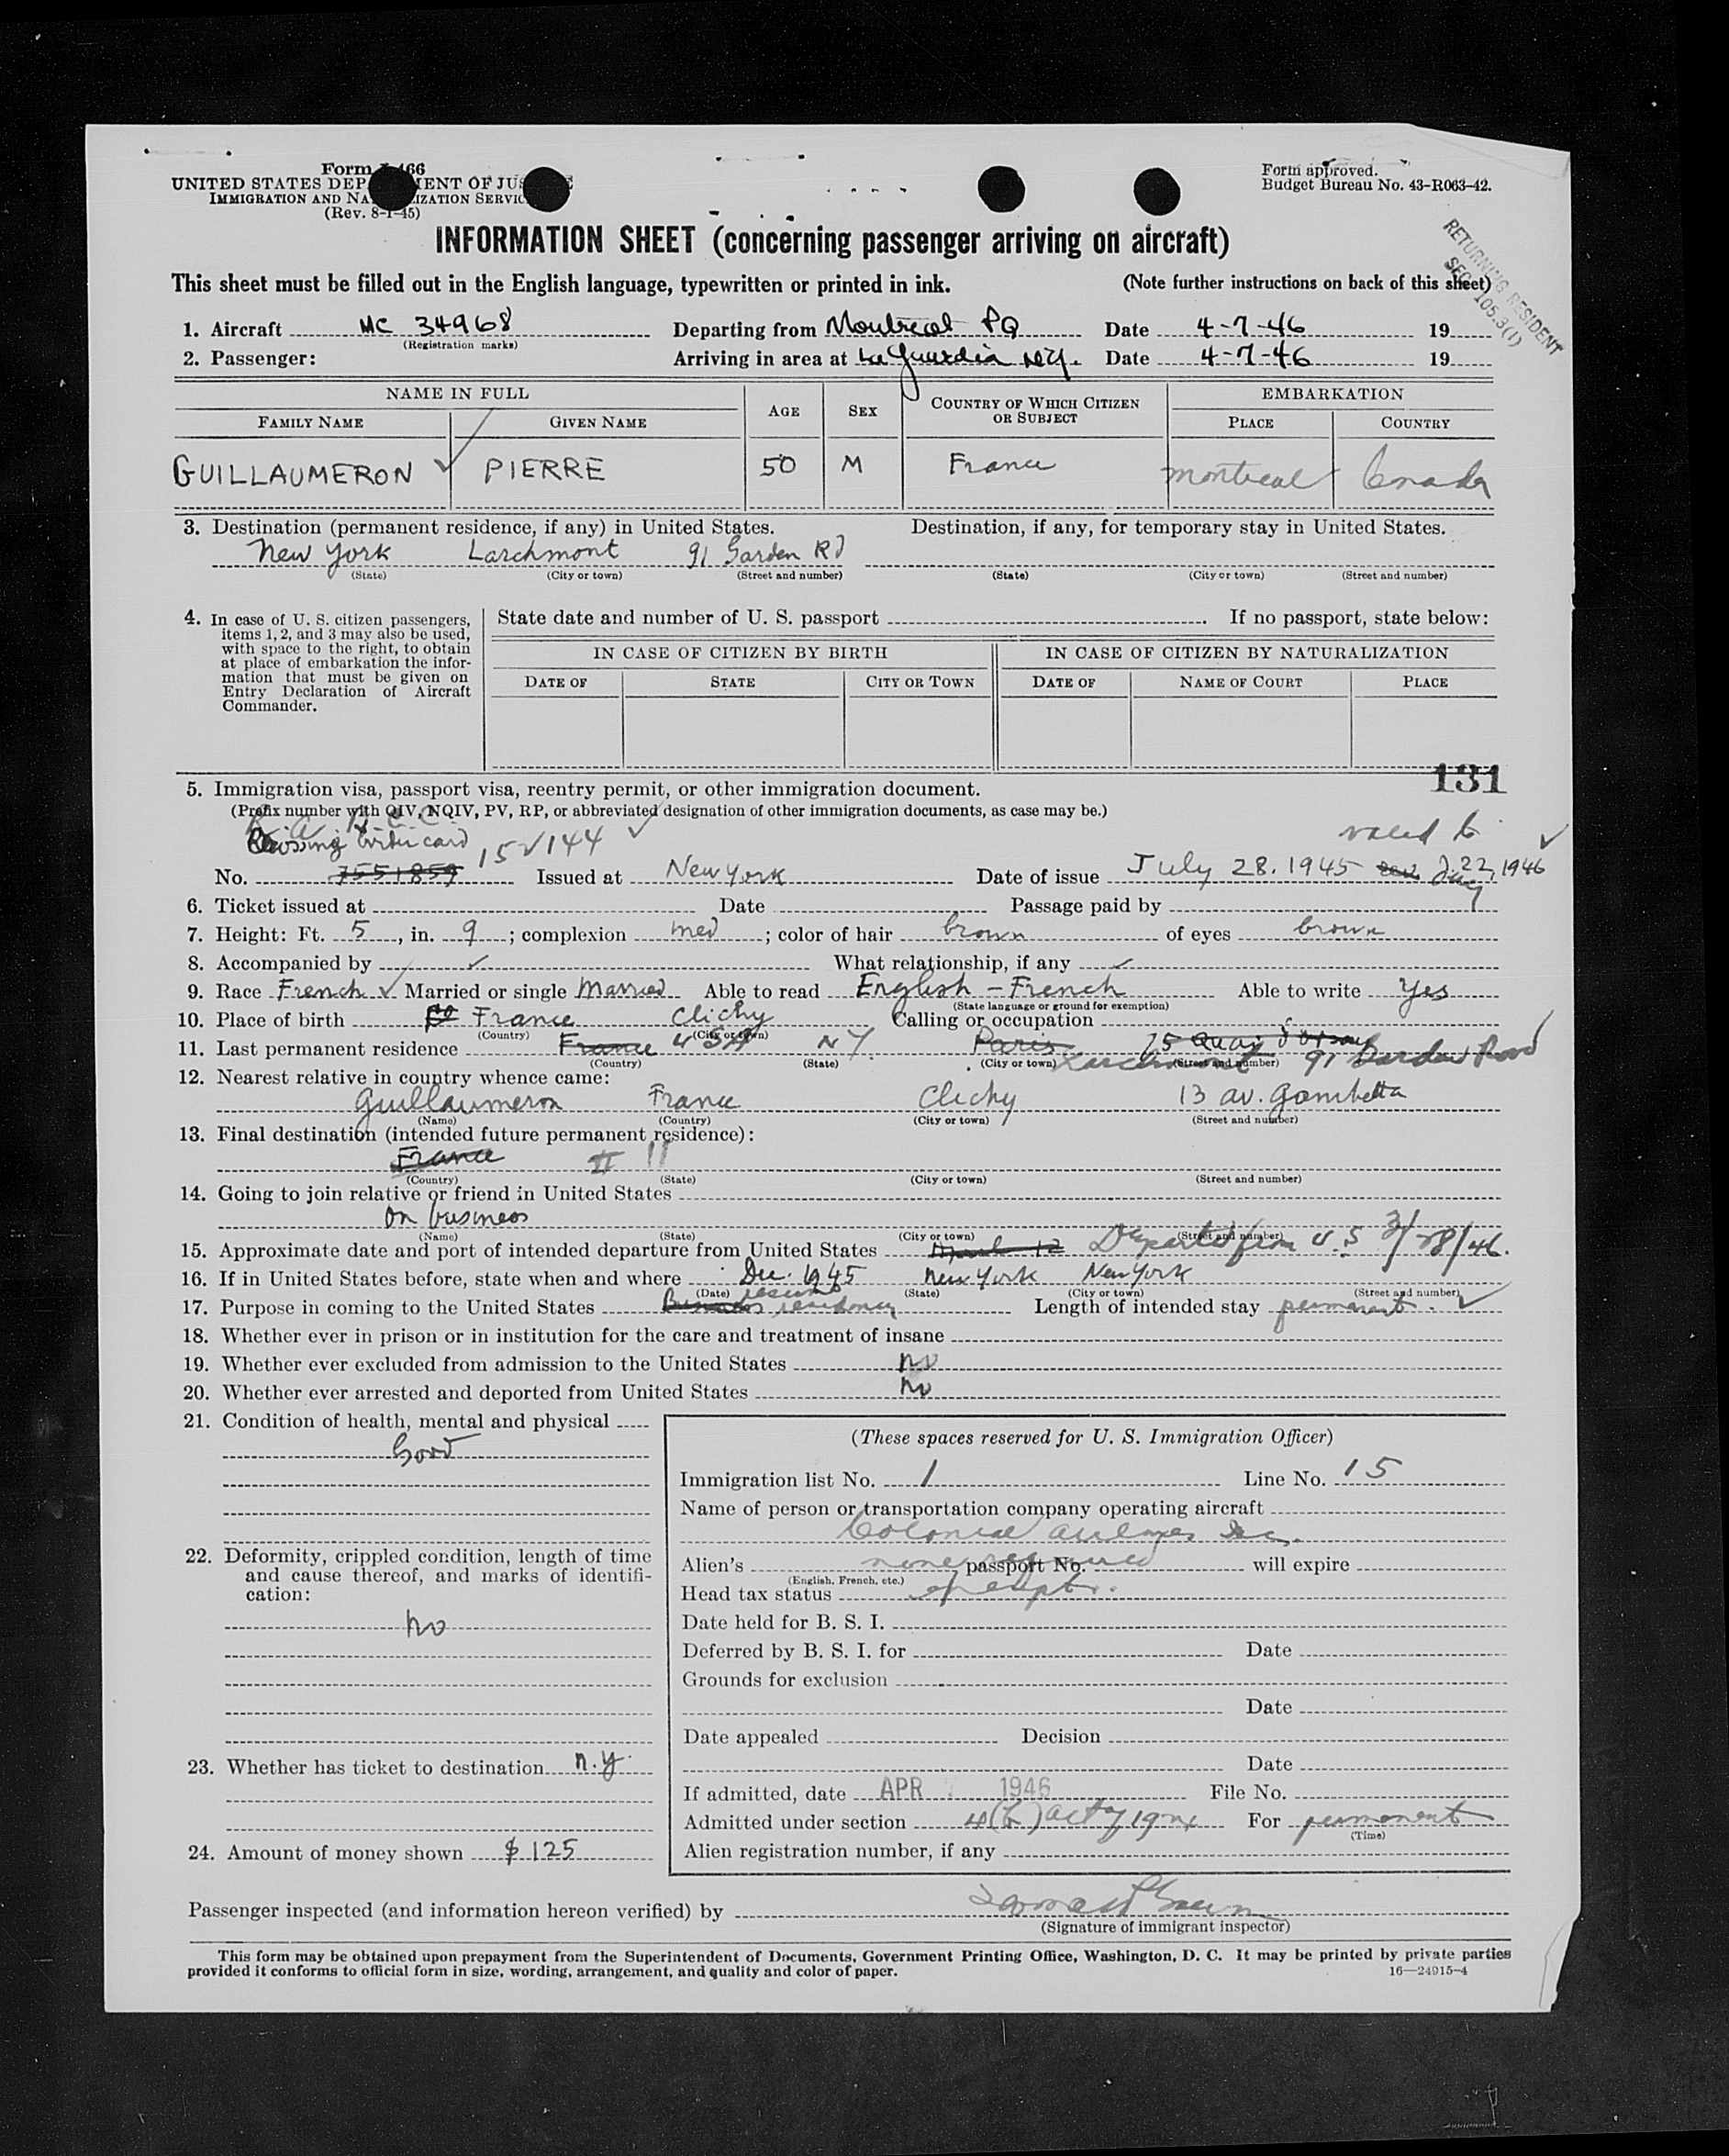 Form 466
UNITED STATES DEPARTMENT OF JUSTICE
IMMIGRATION AND NATURALIZATION SERVICE
(Rev. 8-1-45)
Form approved.
Budget Bureau No. 43-R063-42.
RETURNING RESIDENT
SEC. 105.3(1)
INFORMATION SHEET (concerning passenger arriving on aircraft)
This sheet must be filled out in the English language, typewritten or printed in ink. (Note further instructions on back of this sheet)
1. Aircraft MC 34968 Departing from Montreal PQ Date 4-7-46 19
(Registration marks)
2. Passenger: Arriving in area at La Guardia N.Y. Date 4-7-46 19
NAME IN FULL AGE SEX COUNTRY OF WHICH CITIZEN OR SUBJECT EMBARKATION
FAMILY NAME GIVEN NAME PLACE COUNTRY
GUILLAUMERON PIERRE 50 M France Montreal Canada
3. Destination (permanent residence, if any) in United States. Destination, if any, for temporary stay in United States.
New York Larchmont 91 Garden Rd
(State) (City or town) (Street and number) (State) (City or town) (Street and number)
4. In case of U. S. citizen passengers, items 1, 2, and 3 may also be used, with space to the right, to obtain at place of embarkation the information that must be given on Entry Declaration of Aircraft Commander.
State date and number of U. S. passport . If no passport, state below:
IN CASE OF CITIZEN BY BIRTH IN CASE OF CITIZEN BY NATURALIZATION
DATE OF STATE CITY OR TOWN DATE OF NAME OF COURT PLACE
131
5. Immigration visa, passport visa, reentry permit, or other immigration document.
(Prefix number with QIV, NQIV, PV, RP, or abbreviated designation of other immigration documents, as case may be.)
Crossing border card 15√144 valid to
No. 7551859 Issued at New York Date of issue July 28. 1945 22, 1946
6. Ticket issued at Date Passage paid by
7. Height: Ft. 5, in. 9; complexion med; color of hair brown of eyes brown
8. Accompanied by What relationship, if any
9. Race French Married or single Married Able to read English - French Able to write Yes
(State language or ground for exemption)
10. Place of birth France Clichy Calling or occupation
(Country) (City or town)
11. Last permanent residence France USA N.Y. Paris Larchmont 75 Quai d'Orsay 91 Garden Road
(Country) (State) (City or town) (Street and number)
12. Nearest relative in country whence came:
Guillaumeron France Clichy 13 av. Gambetta
(Name) (Country) (City or town) (Street and number)
13. Final destination (intended future permanent residence):
France
(Country) (State) (City or town) (Street and number)
14. Going to join relative or friend in United States
On business
(Name) (State) (City or town) (Street and number)
15. Approximate date and port of intended departure from United States Departed from U.S 3/28/46.
16. If in United States before, state when and where Dec. 1945 New York New York
(Date) (State) (City or town) (Street and number)
17. Purpose in coming to the United States Business resume residency Length of intended stay permanent.
18. Whether ever in prison or in institution for the care and treatment of insane
19. Whether ever excluded from admission to the United States no
20. Whether ever arrested and deported from United States no
21. Condition of health, mental and physical
Good
22. Deformity, crippled condition, length of time and cause thereof, and marks of identification:
no
23. Whether has ticket to destination n.y.
24. Amount of money shown $125
(These spaces reserved for U. S. Immigration Officer)
Immigration list No. 1 Line No. 15
Name of person or transportation company operating aircraft
Colonial Airlines Inc.
Alien's none required passport No. will expire
(English, French, etc.)
Head tax status exempt.
Date held for B. S. I.
Deferred by B. S. I. for Date
Grounds for exclusion
Date
Date appealed Decision
Date
If admitted, date APR 1946 File No.
Admitted under section 4(b) act of 1924 For permanent
(Time)
Alien registration number, if any
Passenger inspected (and information hereon verified) by
(Signature of immigrant inspector)
This form may be obtained upon prepayment from the Superintendent of Documents, Government Printing Office, Washington, D. C. It may be printed by private parties
provided it conforms to official form in size, wording, arrangement, and quality and color of paper. 16—24915-4